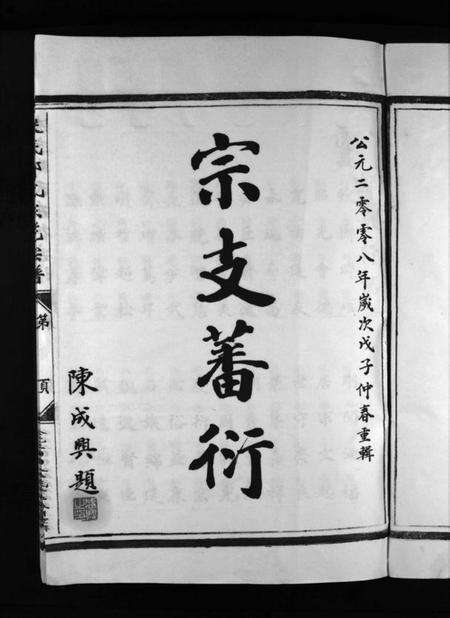 公元二零零八年歲次戊子仲春重輯
宗支蕃衍
陳成興題
第 頁